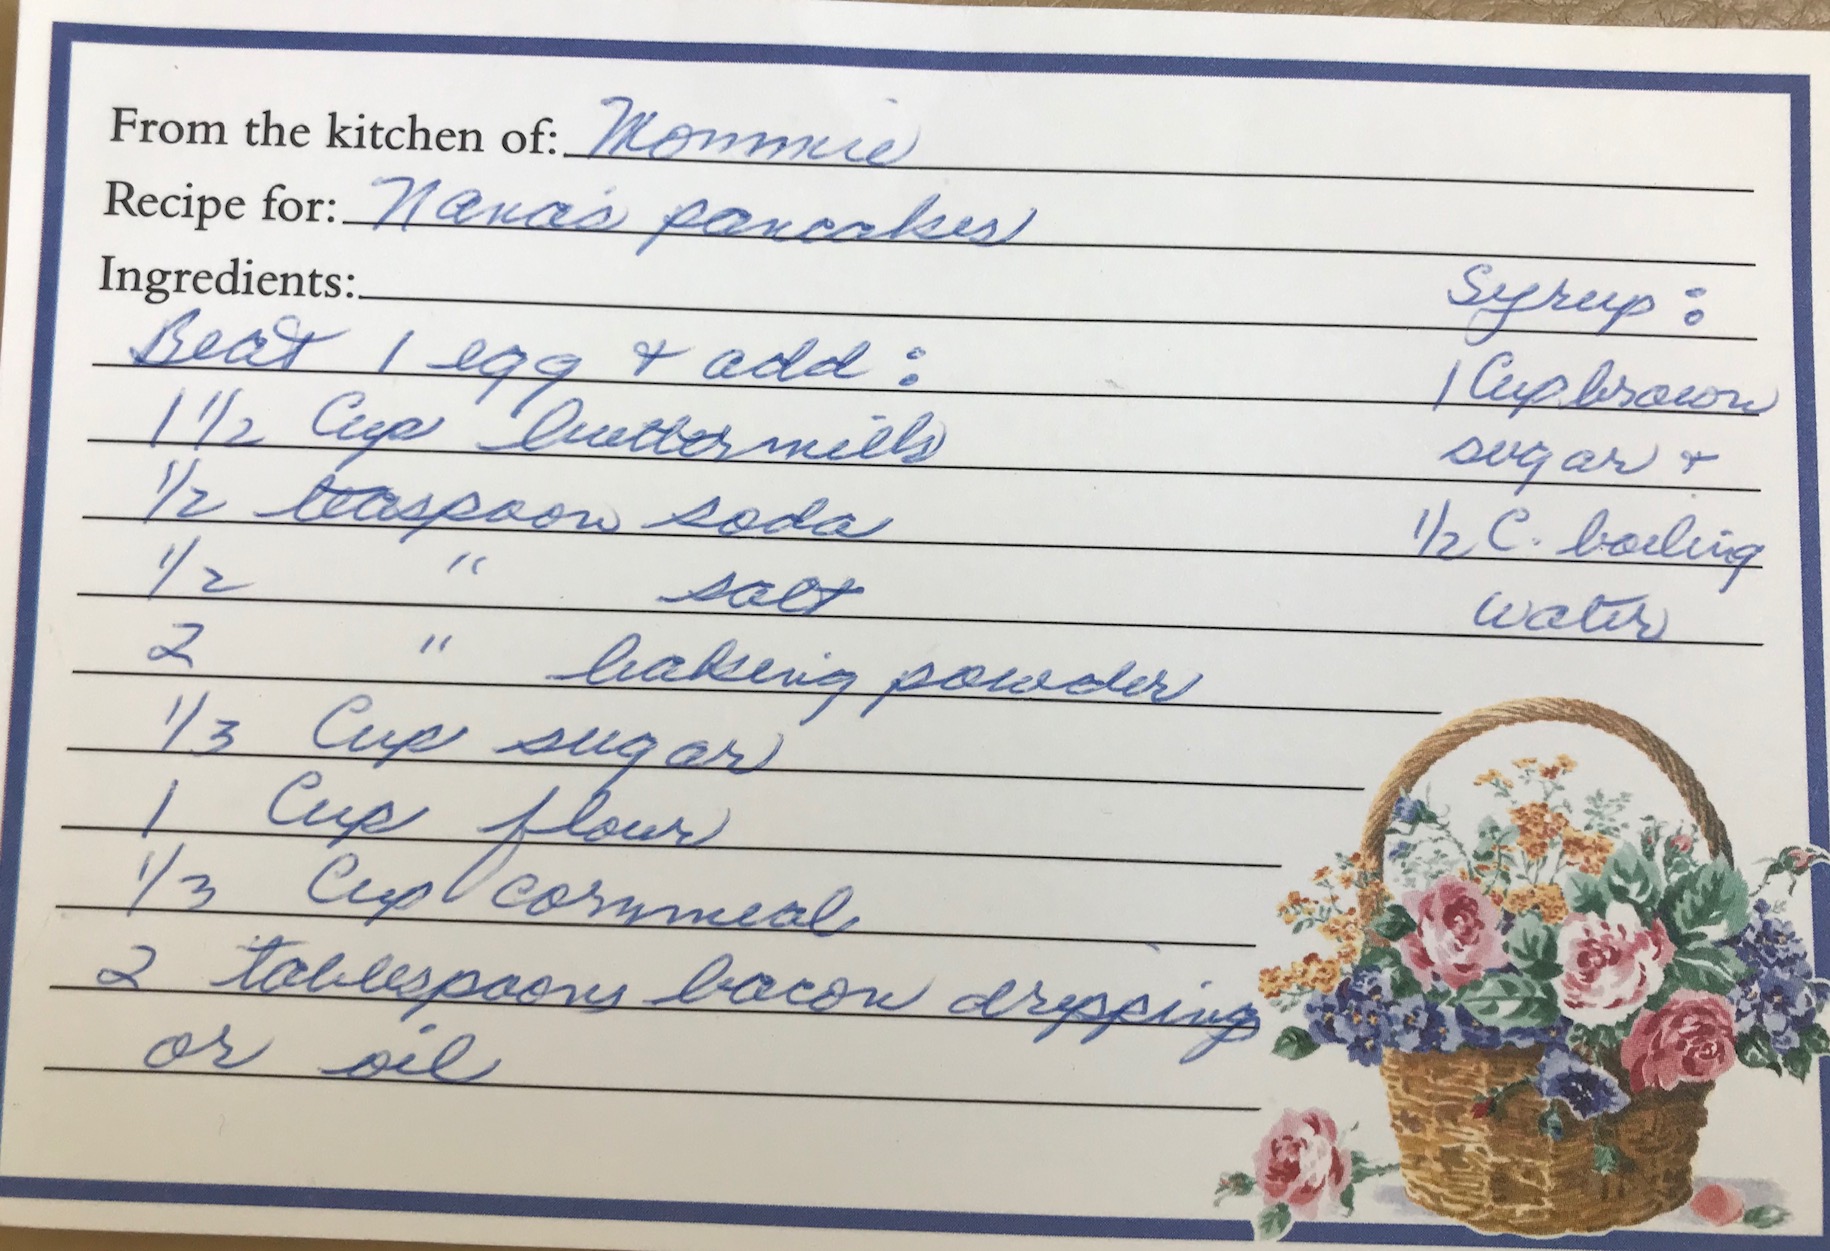 From the kitchen of: Mommie
Recipe for: Nana's pancakes
Ingredients:
Beat 1 egg + add:
1 1/2 Cup buttermilk
1/2 teaspoon soda
1/2 " salt
2 " baking powder
1/3 Cup sugar
1 Cup flour
1/3 Cup cornmeal
2 tablespoons bacon dripping
or oil
Syrup:
1 Cup brown
sugar +
1/2 C. boiling
water